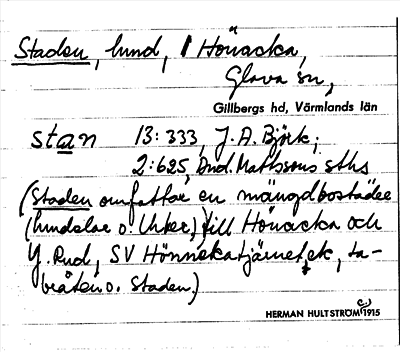 Staden, lund, / Hönacka,
Glava sn,
Gillbergs hd, Värmlands län
stan 13:333, J. A. Björk;
2:625, And. Mattssons sths
(Staden omfattar en mängd bostäder
(lundelar o. Urker,) till Hönacka och
Y. Rud, SV Hönnekatjärnet, ek, ta-
bråten o. Staden,)
HERMAN HULTSTRÖM 1915